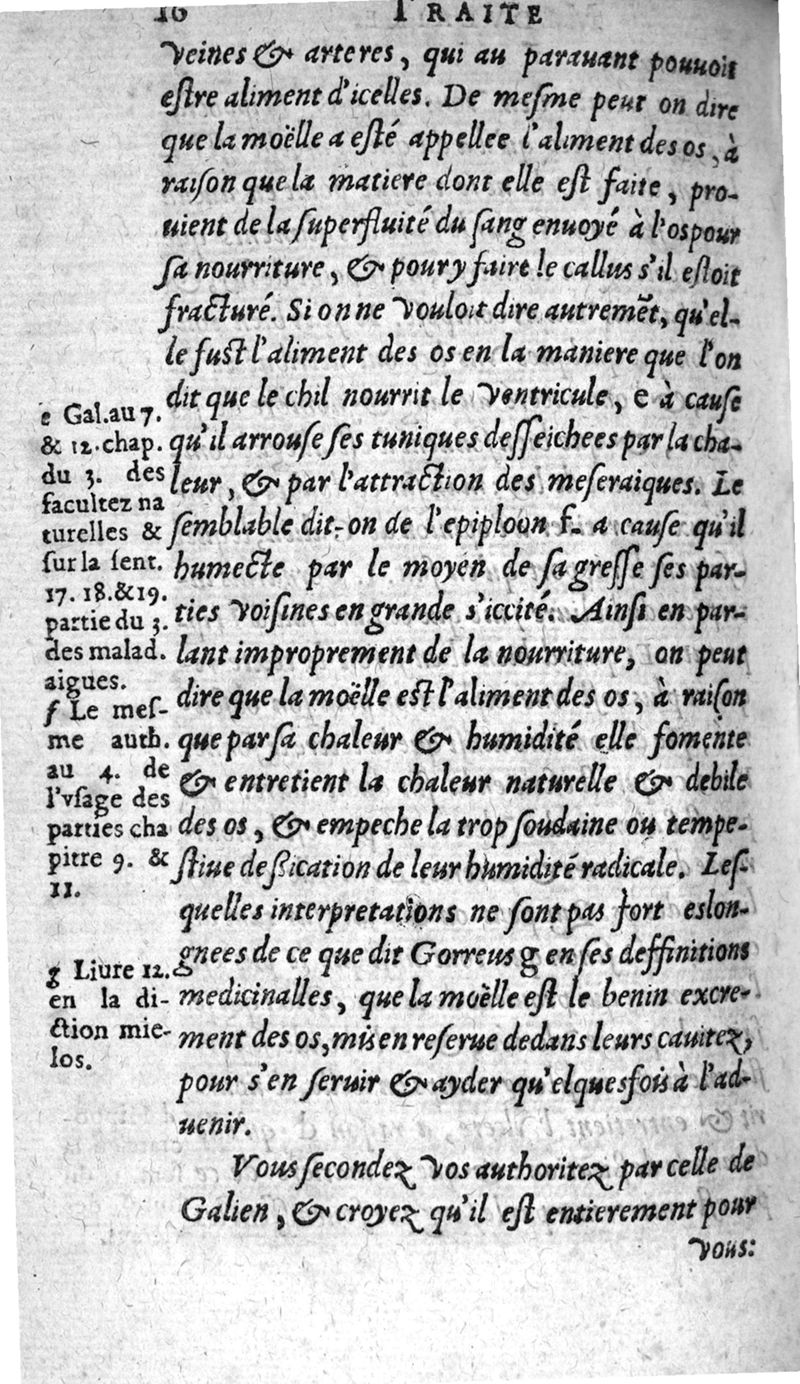 16 TRAITE
veines & arteres, qui au parauant pouuoit
eſtre aliment d'icelles. De meſme peut on dire
que la moëlle a eſté appellee l'aliment des os, à
raiſon que la matiere dont elle eſt faite, pro-
uient de la ſuperfluité du ſang enuoyé à l'os pour
ſa nourriture, & pour y faire le callus s'il eſtoit
fracturé. Si on ne vouloit dire autremẽt, qu'el-
le fuſt l'aliment des os en la maniere que l'on
dit que le chil nourrit le ventricule, e à cauſe
qu'il arrouſe ſes tuniques deſſeichees par la cha-
leur, & par l'attraction des meſeraiques. Le
ſemblable dit-on de l'epiploon f. a cauſe qu'il
humecte par le moyen de ſa greſſe ſes par-
ties voiſines en grande s'iccité. Ainſi en par-
lant improprement de la nourriture, on peut
dire que la moëlle eſt l'aliment des os, à raiſon
que par ſa chaleur & humidité elle fomente
& entretient la chaleur naturelle & debile
des os, & empeche la trop ſoudaine ou tempe-
ſtiue deſſication de leur humidité radicale. Leſ-
quelles interpretations ne ſont pas fort eslon-
gnees de ce que dit Gorreus g en ſes deffinitions
medicinalles, que la moëlle eſt le benin excre-
ment des os, mis en reſerue dedans leurs cauitez,
pour s'en ſeruir & ayder qu'elquesfois à l'ad-
uenir.
Vous ſecondez vos authoritez par celle de
Galien, & croyez qu'il eſt entierement pour
vous:
e Gal. au 7.
& 12. chap.
du 3. des
facultez na
turelles &
ſur la ſent.
17. 18. & 19.
partie du 3.
des malad.
aigues.
f Le meſ-
me auth.
au 4. de
l'vſage des
parties cha
pitre 9. &
11.
g Liure 12.
en la di-
ction mie-
los.